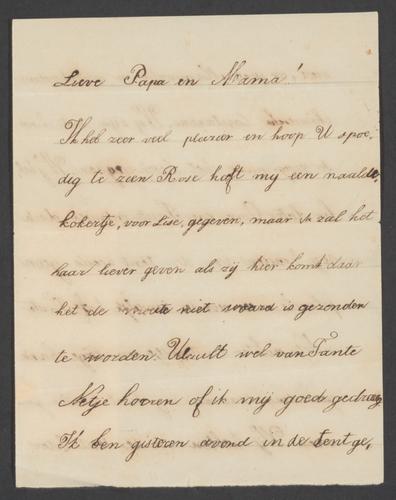 Lieve Papa en Mama!
Ik heb zeer veel plezier en hoop U spoe-
dig te zeen Rose heft my een naalde,
kokertje, voor Lise, gegeven, maar ik zal het
haar liever geven als zij hier komt daar
het de moeite niet waard is gezonden
te worden. U zult wel van Tante
Netje hooren of ik mij goed gedraag
Ik ben gisteren avond in de tent ge,